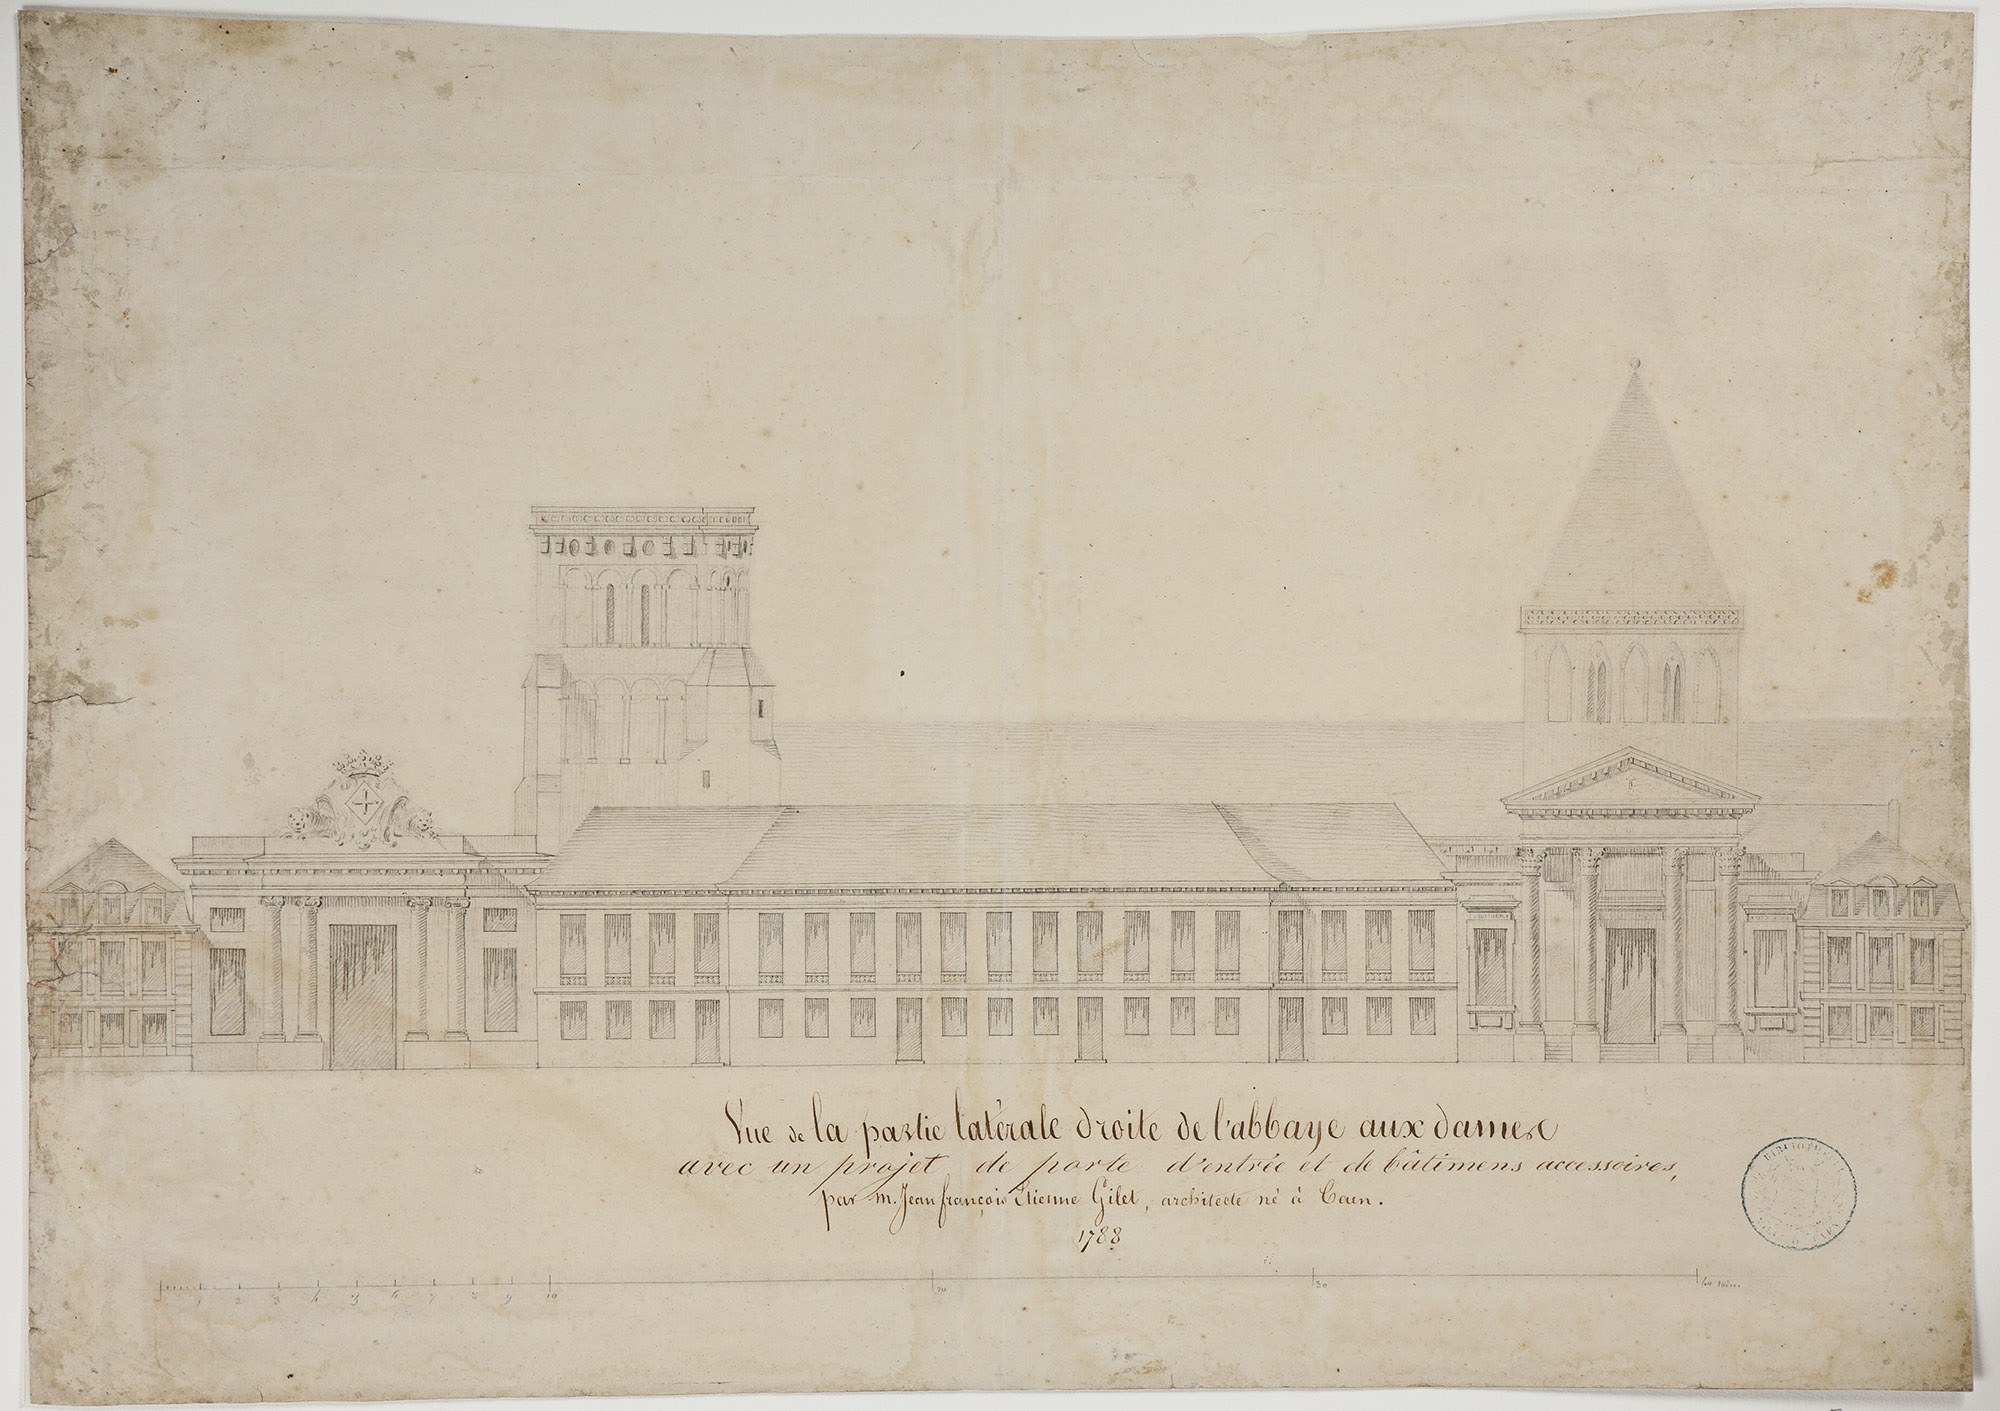 Vue de la partie latérale droite de l'abbaye aux dames
avec un projet de porte d'entrée et de bâtimens accessoires,
par m. Jean françois Etienne Gilet, architecte né à Caen.
1788
1 2 3 4 5 6 7 8 9 10 20 30 40
BIBLIOTHÈQUE